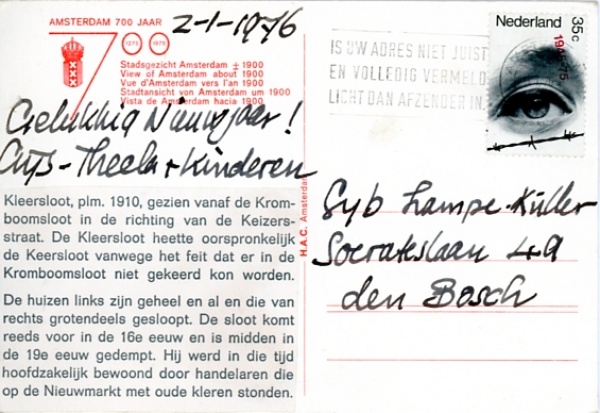 AMSTERDAM 700 JAAR
2-1-1976
1275 1975
Stadsgezicht Amsterdam ± 1900
View of Amsterdam about 1900
Vue d'Amsterdam vers l'an 1900
Stadtansicht von Amsterdam um 1900
Vista de Amsterdam hacia 1900
Gelukkig Nieuwjaar!
Theela + Kinderen
Kleersloot, plm. 1910, gezien vanaf de Krom-
boomsloot in de richting van de Keizers-
straat. De Kleersloot heette oorspronkelijk
de Keersloot vanwege het feit dat er in de
Kromboomsloot niet gekeerd kon worden.
De huizen links zijn geheel en al en die van
rechts grotendeels gesloopt. De sloot komt
reeds voor in de 16e eeuw en is midden in
de 19e eeuw gedempt. Hij werd in die tijd
hoofdzakelijk bewoond door handelaren die
op de Nieuwmarkt met oude kleren stonden.
H.A.C. Amsterdam
IS UW ADRES NIET JUIST
EN VOLLEDIG VERMELD
LICHT DAN AFZENDER IN
Nederland
35c
1945-75
Syb Lampe-Küller
Socrateslaan 49
den Bosch